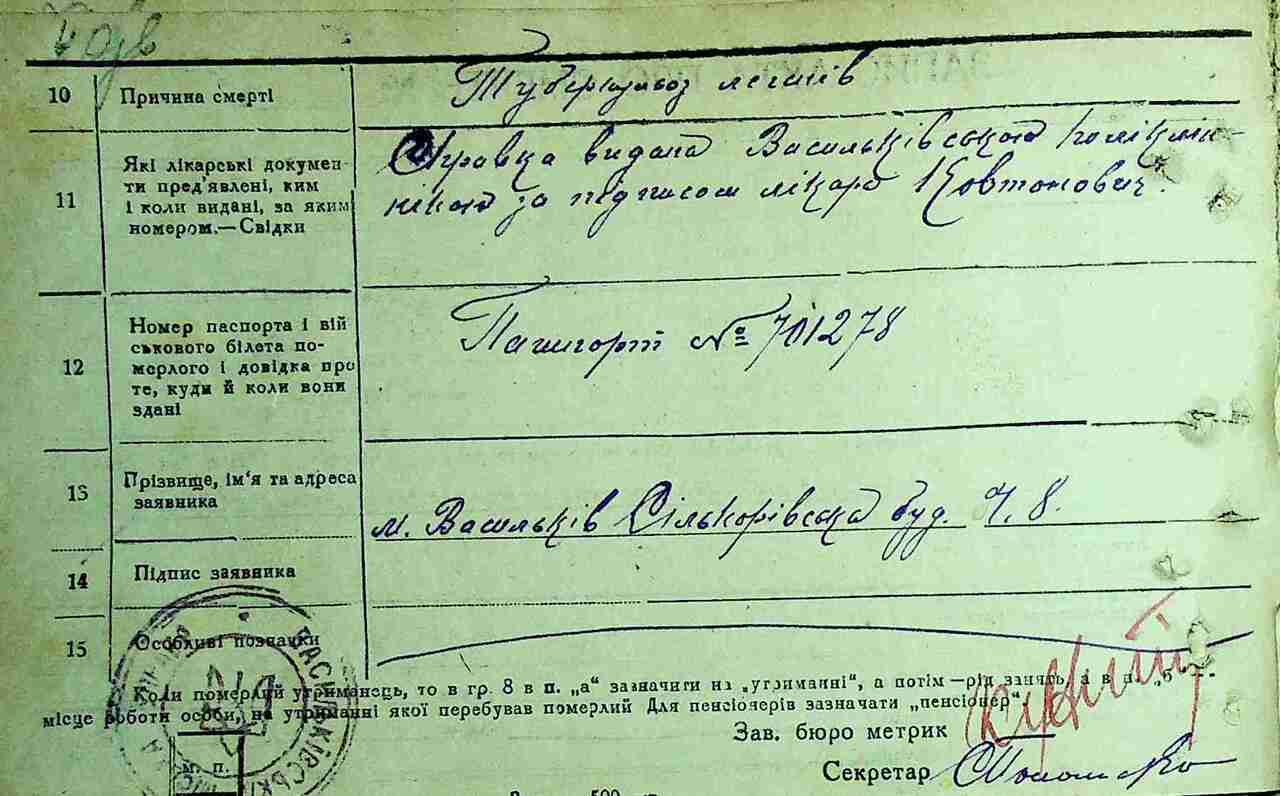 10 Причина смерті Туберкульоз легенів
11 Які лікарські докумен-
ти пред'явлені, ким
і коли видані, за яким
номером.—Свідки
Справка видана Васильківською полікли-
нікою за підписом лікаря Ковтонович.
12 Номер паспорта і вій
ськового білета по-
мерлого і довідка про
те, куди й коли вони
здані
Пашпорт № 701278
13 Прізвище, ім'я та адреса
заявника
м. Васильків Сількорівська буд. Ч. 8.
14 Підпис заявника
15 Особливі позначки
Коли померлий утриманець, то в гр. 8 в п. „а" зазначити на „утриманні", а потім—рід занять, а в п. „б"
місце роботи особи, на утриманні якої перебував померлий Для пенсіонерів зазначати „пенсіонер".
Зав. бюро метрик
Секретар
м. п.